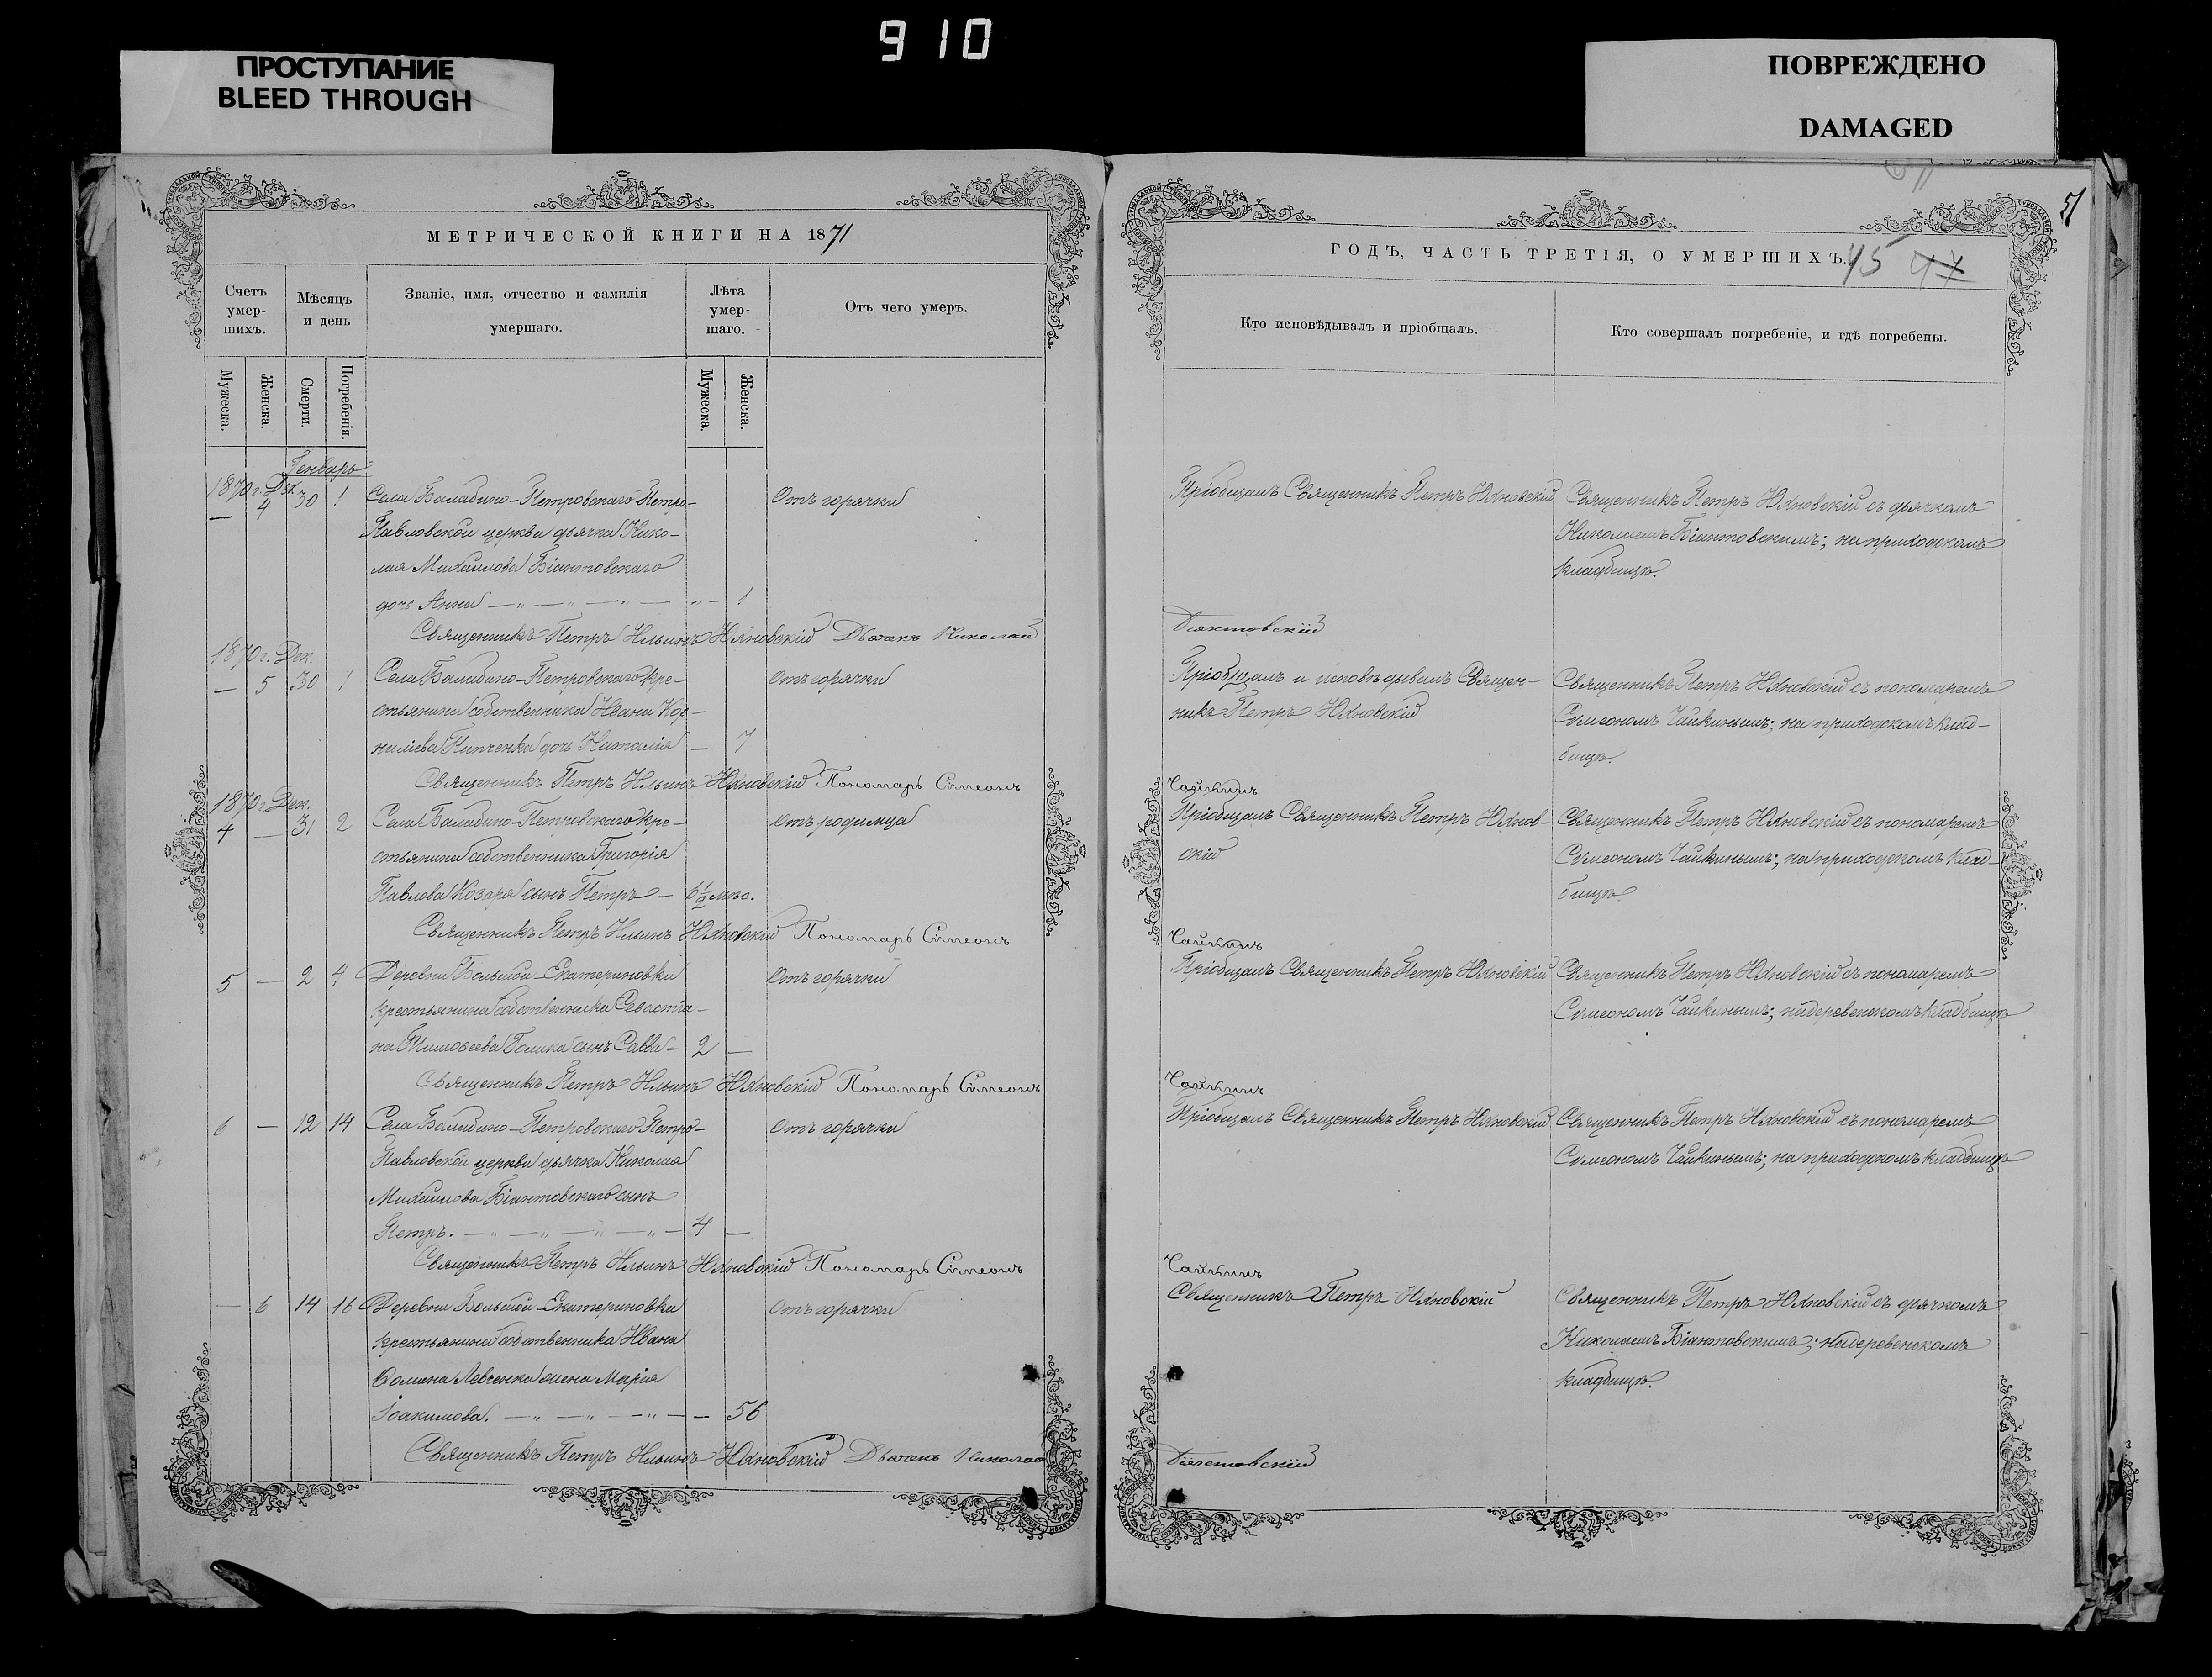 910
ПРОСТУПАНИЕ
BLEED THROUGH
ПОВРЕЖДЕНО
DAMAGED
51
МЕТРИЧЕСКОЙ КНИГИ НА 1871
ГОДЪ, ЧАСТЬ ТРЕТІЯ, О УМЕРШИХЪ. 45 47
Счетъ умер-шихъ.
Мѣсяцъ и день
Званіе, имя, отчество и фамилія умершаго.
Лѣта умер-шаго.
Отъ чего умеръ.
Кто исповѣдывалъ и пріобщалъ.
Кто совершалъ погребеніе, и гдѣ погребены.
Мужеска. Женска. Смерти. Погребенія. Мужеска. Женска.
Генварь
1870 г. Дек.
— 4 30 1 Села Баладино-Петровскаго Петро- Отъ горячки Пріобщалъ Священникъ Петръ Юхновскій Священникъ Петръ Юхновскій съ дьячкомъ
Павловской церкви дьячка Нико- Николаемъ Біантовскимъ; на приходскомъ
лая Михайлова Біантовскаго кладбищѣ.
дочь Анна — „ — „ — „ — „ — 1
Священникъ Петръ Ильинъ Юхновскій Дьячекъ Николай Біянтовскій
1870 г. Дек.
— 5 30 1 Села Баладино-Петровскаго кре- Отъ горячки Пріобщалъ и исповѣдывалъ Священ- Священникъ Петръ Юхновскій съ пономаремъ
стьянина собственника Ивана Кор- никъ Петръ Юхновскій Симеономъ Чайкинымъ; на приходскомъ клад-
нилієва дочь Наталія — 7 бищѣ.
Священникъ Петръ Ильинъ Юхновскій Пономарь Симеонъ Чайкинъ
1870 г. Дек.
4 — 31 2 Села Баладино-Петровскаго кре- Отъ родимца Пріобщалъ Священникъ Петръ Юхнов- Священникъ Петръ Юхновскій съ пономаремъ
стьянина собственника Григорія скій Симеономъ Чайкинымъ; на приходскомъ клад-
Павлова Козаря сынъ Петръ — 6 1/2 мѣс. бищѣ.
Священникъ Петръ Ильинъ Юхновскій Пономарь Симеонъ Чайкинъ
5 — 2 4 Деревни Большой-Екатериновки Отъ горячки Пріобщалъ Священникъ Петръ Юхновскій Священникъ Петръ Юхновскій съ пономаремъ
крестьянина собственника Севастіа- Симеономъ Чайкинымъ; на деревенскомъ кладбищѣ
на Тимофеева Голика сынъ Савва — 2 —
Священникъ Петръ Ильинъ Юхновскій Пономарь Симеонъ Чайкинъ
6 — 12 14 Села Баладино-Петровскаго Петро- Отъ горячки Пріобщалъ Священникъ Петръ Юхновскій Священникъ Петръ Юхновскій съ пономаремъ
Павловской церкви дьячка Николая Симеономъ Чайкинымъ; на приходскомъ кладбищѣ
Михайлова Біантовскаго сынъ
Петръ. — „ — „ — „ — „ — 4 —
Священникъ Петръ Ильинъ Юхновскій Пономарь Симеонъ Чайкинъ
— 6 14 16 Деревни Большой-Екатериновки Отъ горячки Священникъ Петръ Юхновскій Священникъ Петръ Юхновскій съ дьячкомъ
крестьянина собственника Ивана Николаемъ Біантовскимъ; на деревенскомъ
Левченка жена Марія кладбищѣ.
Іоакимова. — „ — „ — „ — — 56
Священникъ Петръ Ильинъ Юхновскій Дьячекъ Николай Біянтовскій